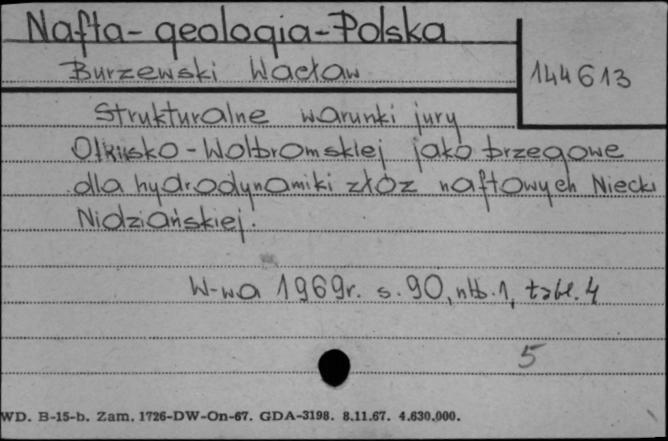 Nafta - geologia - Polska
Burzewski Wacław
144613
Strukturalne warunki jury
Olkusko - Wolbromskiej jako brzegowe
dla hydrodynamiki złóż naftowych Niecki
Nidziańskiej.
W-wa 1969r. s. 90, nlb. 1, tabl. 4
5
WD. B-15-b. Zam. 1726-DW-On-67. GDA-3198. 8.11.67. 4.630.000.